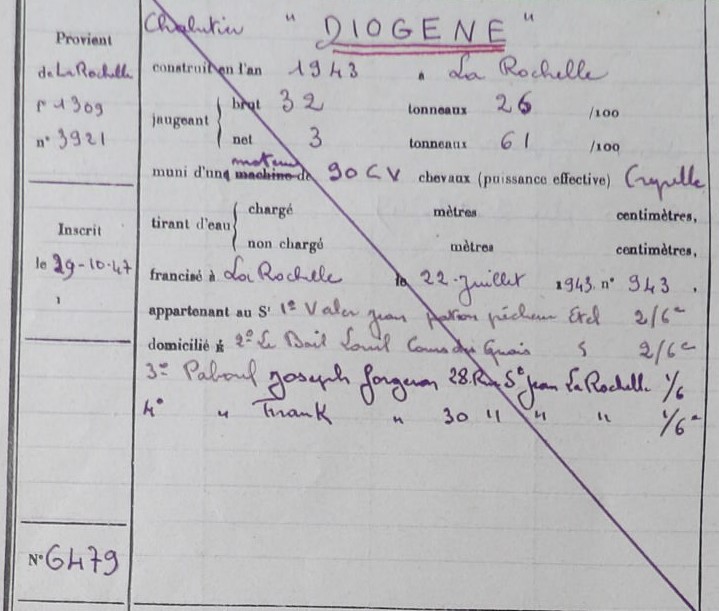 Provient
de La Rochelle
f° 1309
n° 3921
Inscrit
le 29-10-47
N° 6479
Chalutier " DIOGENE "
construit en l'an 1943 à La Rochelle
jaugeant { brut 32 tonneaux 26 /100
net 3 tonneaux 61 /100
muni d'une moteur machine de 90 CV chevaux (puissance effective) Crepelle
tirant d'eau { chargé mètres centimètres,
non chargé mètres centimètres,
francisé à La Rochelle le 22 Juillet 1943. n° 943 .
appartenant au Sr 1° Valer jean patron pêcheur Etel 2/6e
domicilié à 2° Le Bail Louis Cours des Quais 2/6e
3° Joseph forgeron 28 Rue St Jean La Rochelle 1/6
4° " Frank " 30 " " " 1/6e